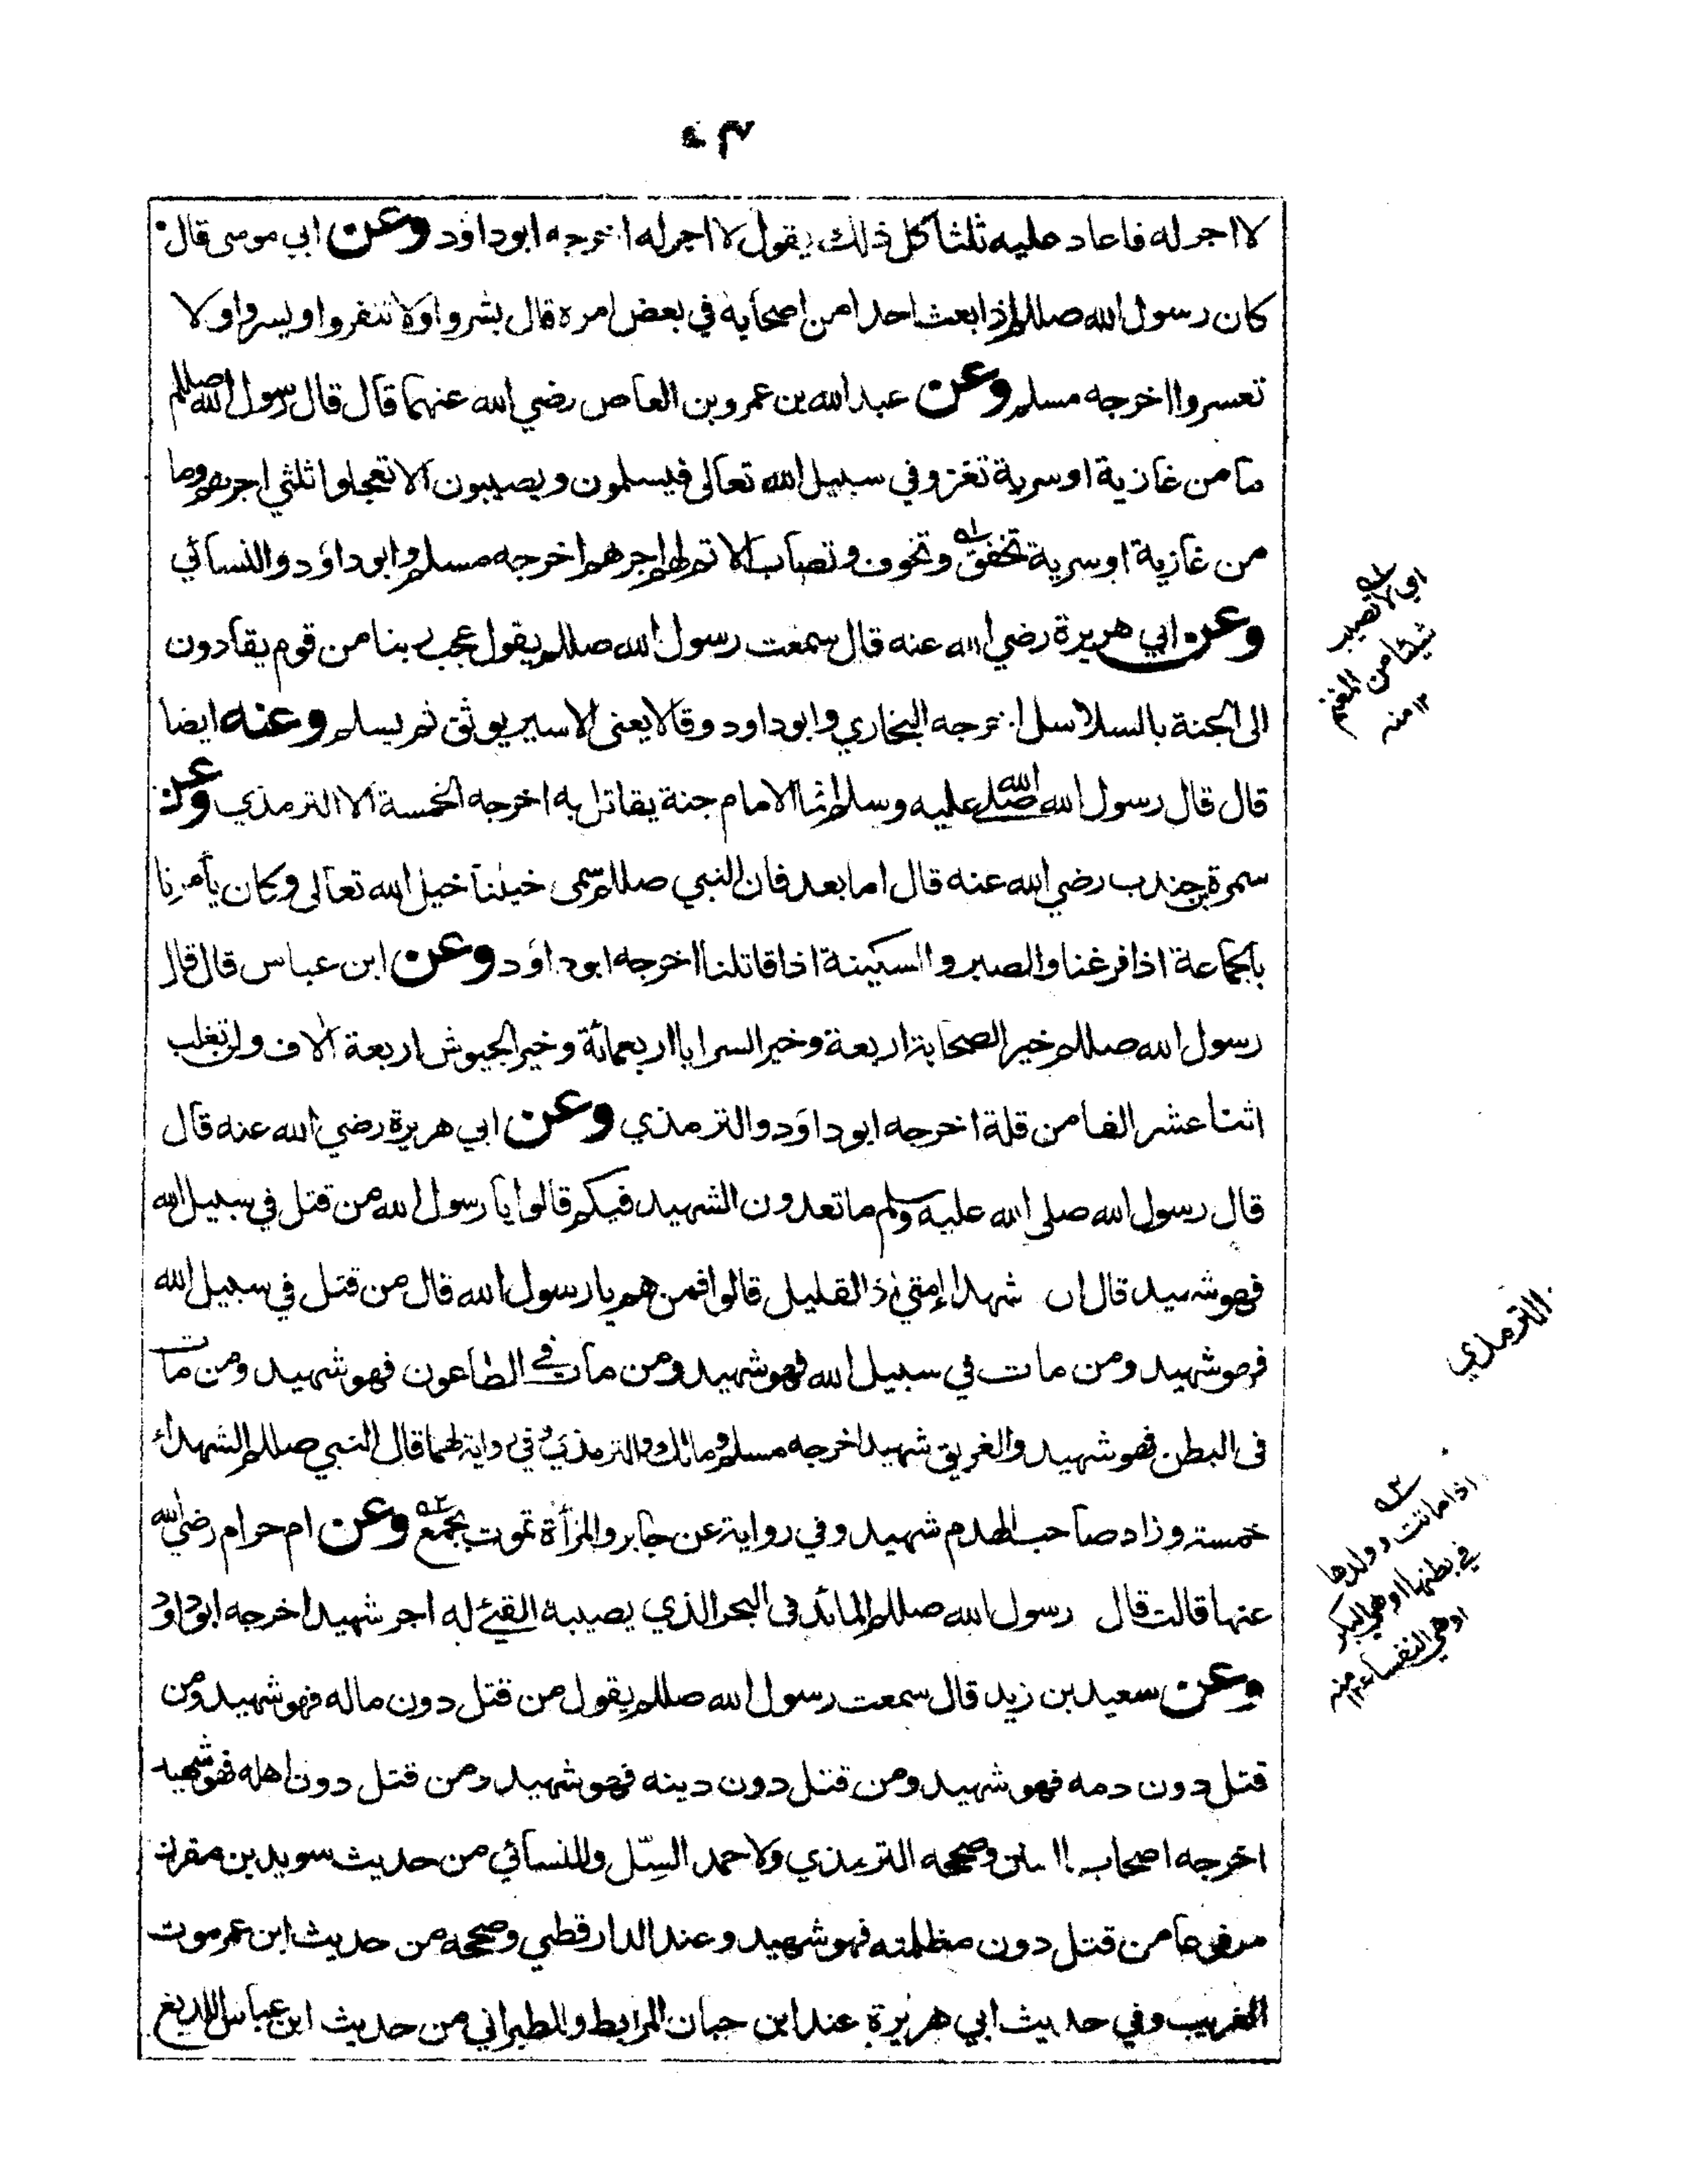 لا اجر له فاعاد عليه ثلثا كل ذلك يقول لا اجر له اخرجه ابوداؤد وعن ابي موسى قال
كان رسول الله صللم اذا بعث احدا من اصحابه في بعض امره قال بشروا ولا تنفروا ويسروا ولا
تعسروا اخرجه مسلم وعن عبد الله بن عمرو بن العاص رضي الله عنهما قال قال رسول الله صللم
ما من غازية او سرية تغزو في سبيل الله تعالى فيسلمون ويصيبون الا تعجلوا ثلثي اجرهم وما
من غازية او سرية تخفق وتخوف وتصاب الا تم لهم اجرهم اخرجه مسلم وابوداؤد والنسائي
وعن ابي هريرة رضي الله عنه قال سمعت رسول الله صللم يقول عجب ربنا من قوم يقادون
الى الجنة بالسلاسل اخرجه البخاري وابوداود وقالا يعنى الاسير يوثق ثم يسلم وعنه ايضا
قال قال رسول الله صلى الله عليه وسلم انما الامام جنة يقاتل به اخرجه الخمسة الا الترمذي وعن
سمرة بن جندب رضي الله عنه قال اما بعد فان النبي صللم سمى خيلنا خيل الله تعالى وكان يأمرنا
بالجماعة اذا فرغنا والصبر والسكينة اذا قاتلنا اخرجه ابوداؤد وعن ابن عباس قال قال
رسول الله صللم خير الصحابة اربعة وخير السرايا اربعمائة وخير الجيوش اربعة الاف ولن تغلب
اثنا عشر الفا من قلة اخرجه ابوداؤد والترمذي وعن ابي هريرة رضي الله عنه قال
قال رسول الله صلى الله عليه وسلم ما تعدون الشهيد فيكم قالوا يا رسول الله من قتل في سبيل الله
فهو شهيد قال ان شهداء امتي اذ القليل قالوا فمن هم يا رسول الله قال من قتل في سبيل الله
فهو شهيد ومن مات في سبيل الله فهو شهيد ومن مات في الطاعون فهو شهيد ومن مات
فى البطن فهو شهيد والغريق شهيد اخرجه مسلم ومالك والترمذي وفي رواية لهما قال النبي صللم الشهداء
خمسة وزاد صاحب الهدم شهيد وفي رواية عن جابر والمرأة تموت بجمع وعن ام حرام رضي الله
عنها قالت قال رسول الله صللم المائد فى البحر الذي يصيبه القيئ له اجر شهيد اخرجه ابوداود
وعن سعيد بن زيد قال سمعت رسول الله صللم يقول من قتل دون ماله فهو شهيد ومن
قتل دون دمه فهو شهيد ومن قتل دون دينه فهو شهيد ومن قتل دون اهله فهو شهيد
اخرجه اصحاب السنن وصححه الترمذي ولاحمد السل وللنسائي من حديث سويد بن مقرن
مرفوعا من قتل دون مظلمته فهو شهيد وعند الدارقطني وصححه من حديث ابن عمر موت
الغريب وفي حديث ابي هريرة عند ابن حبان المرابط وللطبراني من حديث ابن عباس اللديغ
اي لا تصيب
شيئا من المغنم
١٢ منه
الترمذي
اذا ماتت وولدها
في بطنها او هي البكر
او هي النفساء ١٢ منه